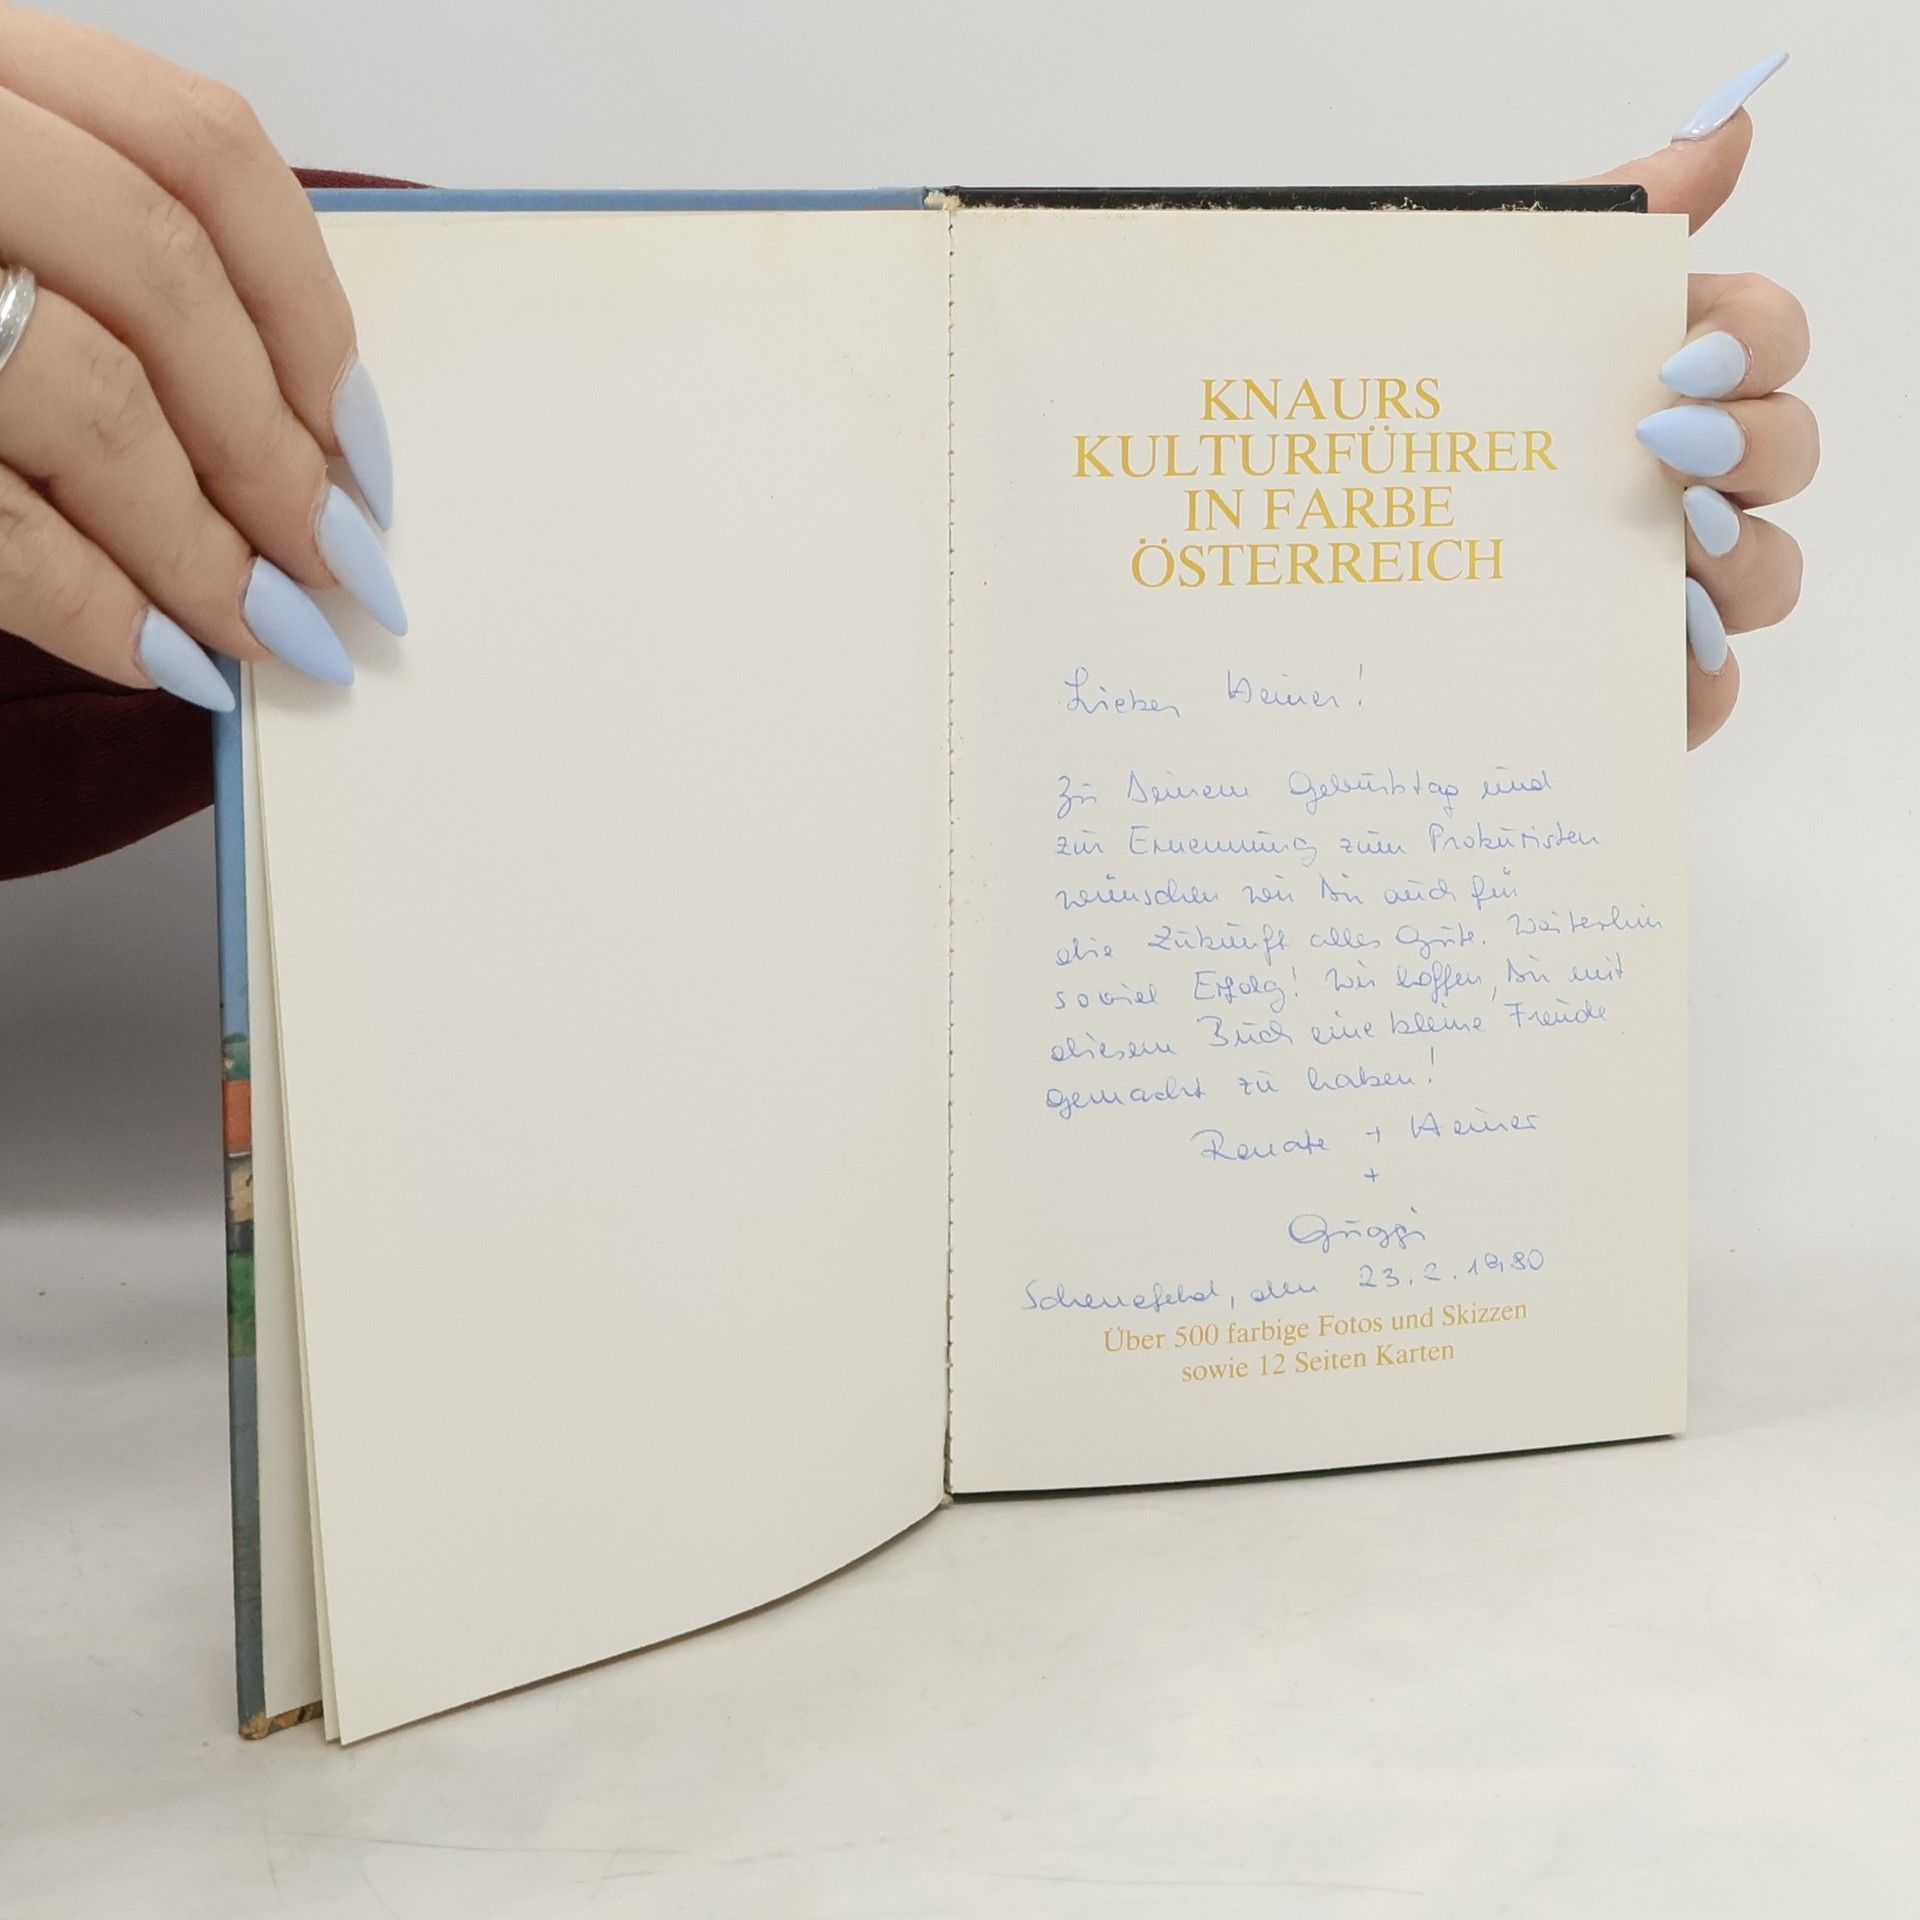 KNAURS
KULTURFÜHRER
IN FARBE
ÖSTERREICH
Lieber Heiner!
Zu Deinem Geburtstag und
zur Ernennung zum Prokuristen
wünschen wir Dir auch für
die Zukunft alles Gute. Weiterhin
soviel Erfolg! Wir hoffen, Dir mit
diesem Buch eine kleine Freude
gemacht zu haben!
Renate + Heiner
+
Guggi
Schenefeld, den 23.2.1980
Über 500 farbige Fotos und Skizzen
sowie 12 Seiten Karten